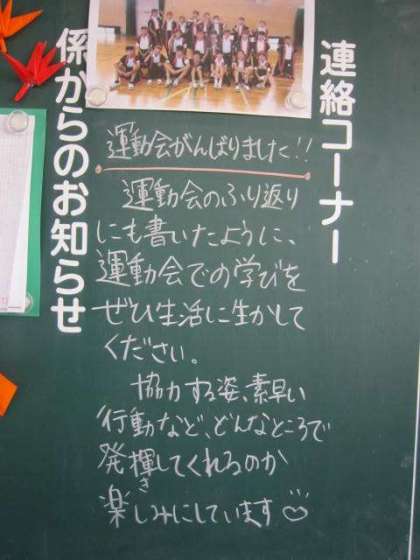 連絡コーナー
係からのお知らせ
運動会がんばりました!!
運動会のふり返り
にも書いたように、
運動会での学びを
ぜひ生活に生かして
ください。
協力する姿、素早い
行動など、どんなところで
発揮してくれるのか
き
楽しみにしています